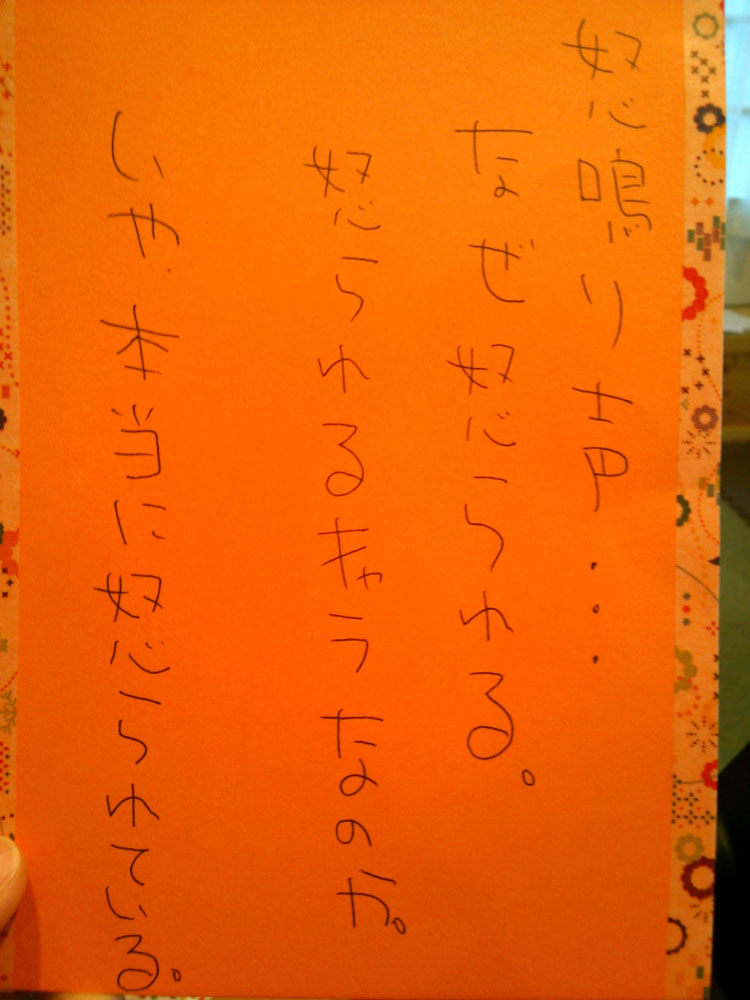 怒鳴り声・・・
なぜ怒られる。
怒られるキャラなのか。
いや、本当に怒られている。